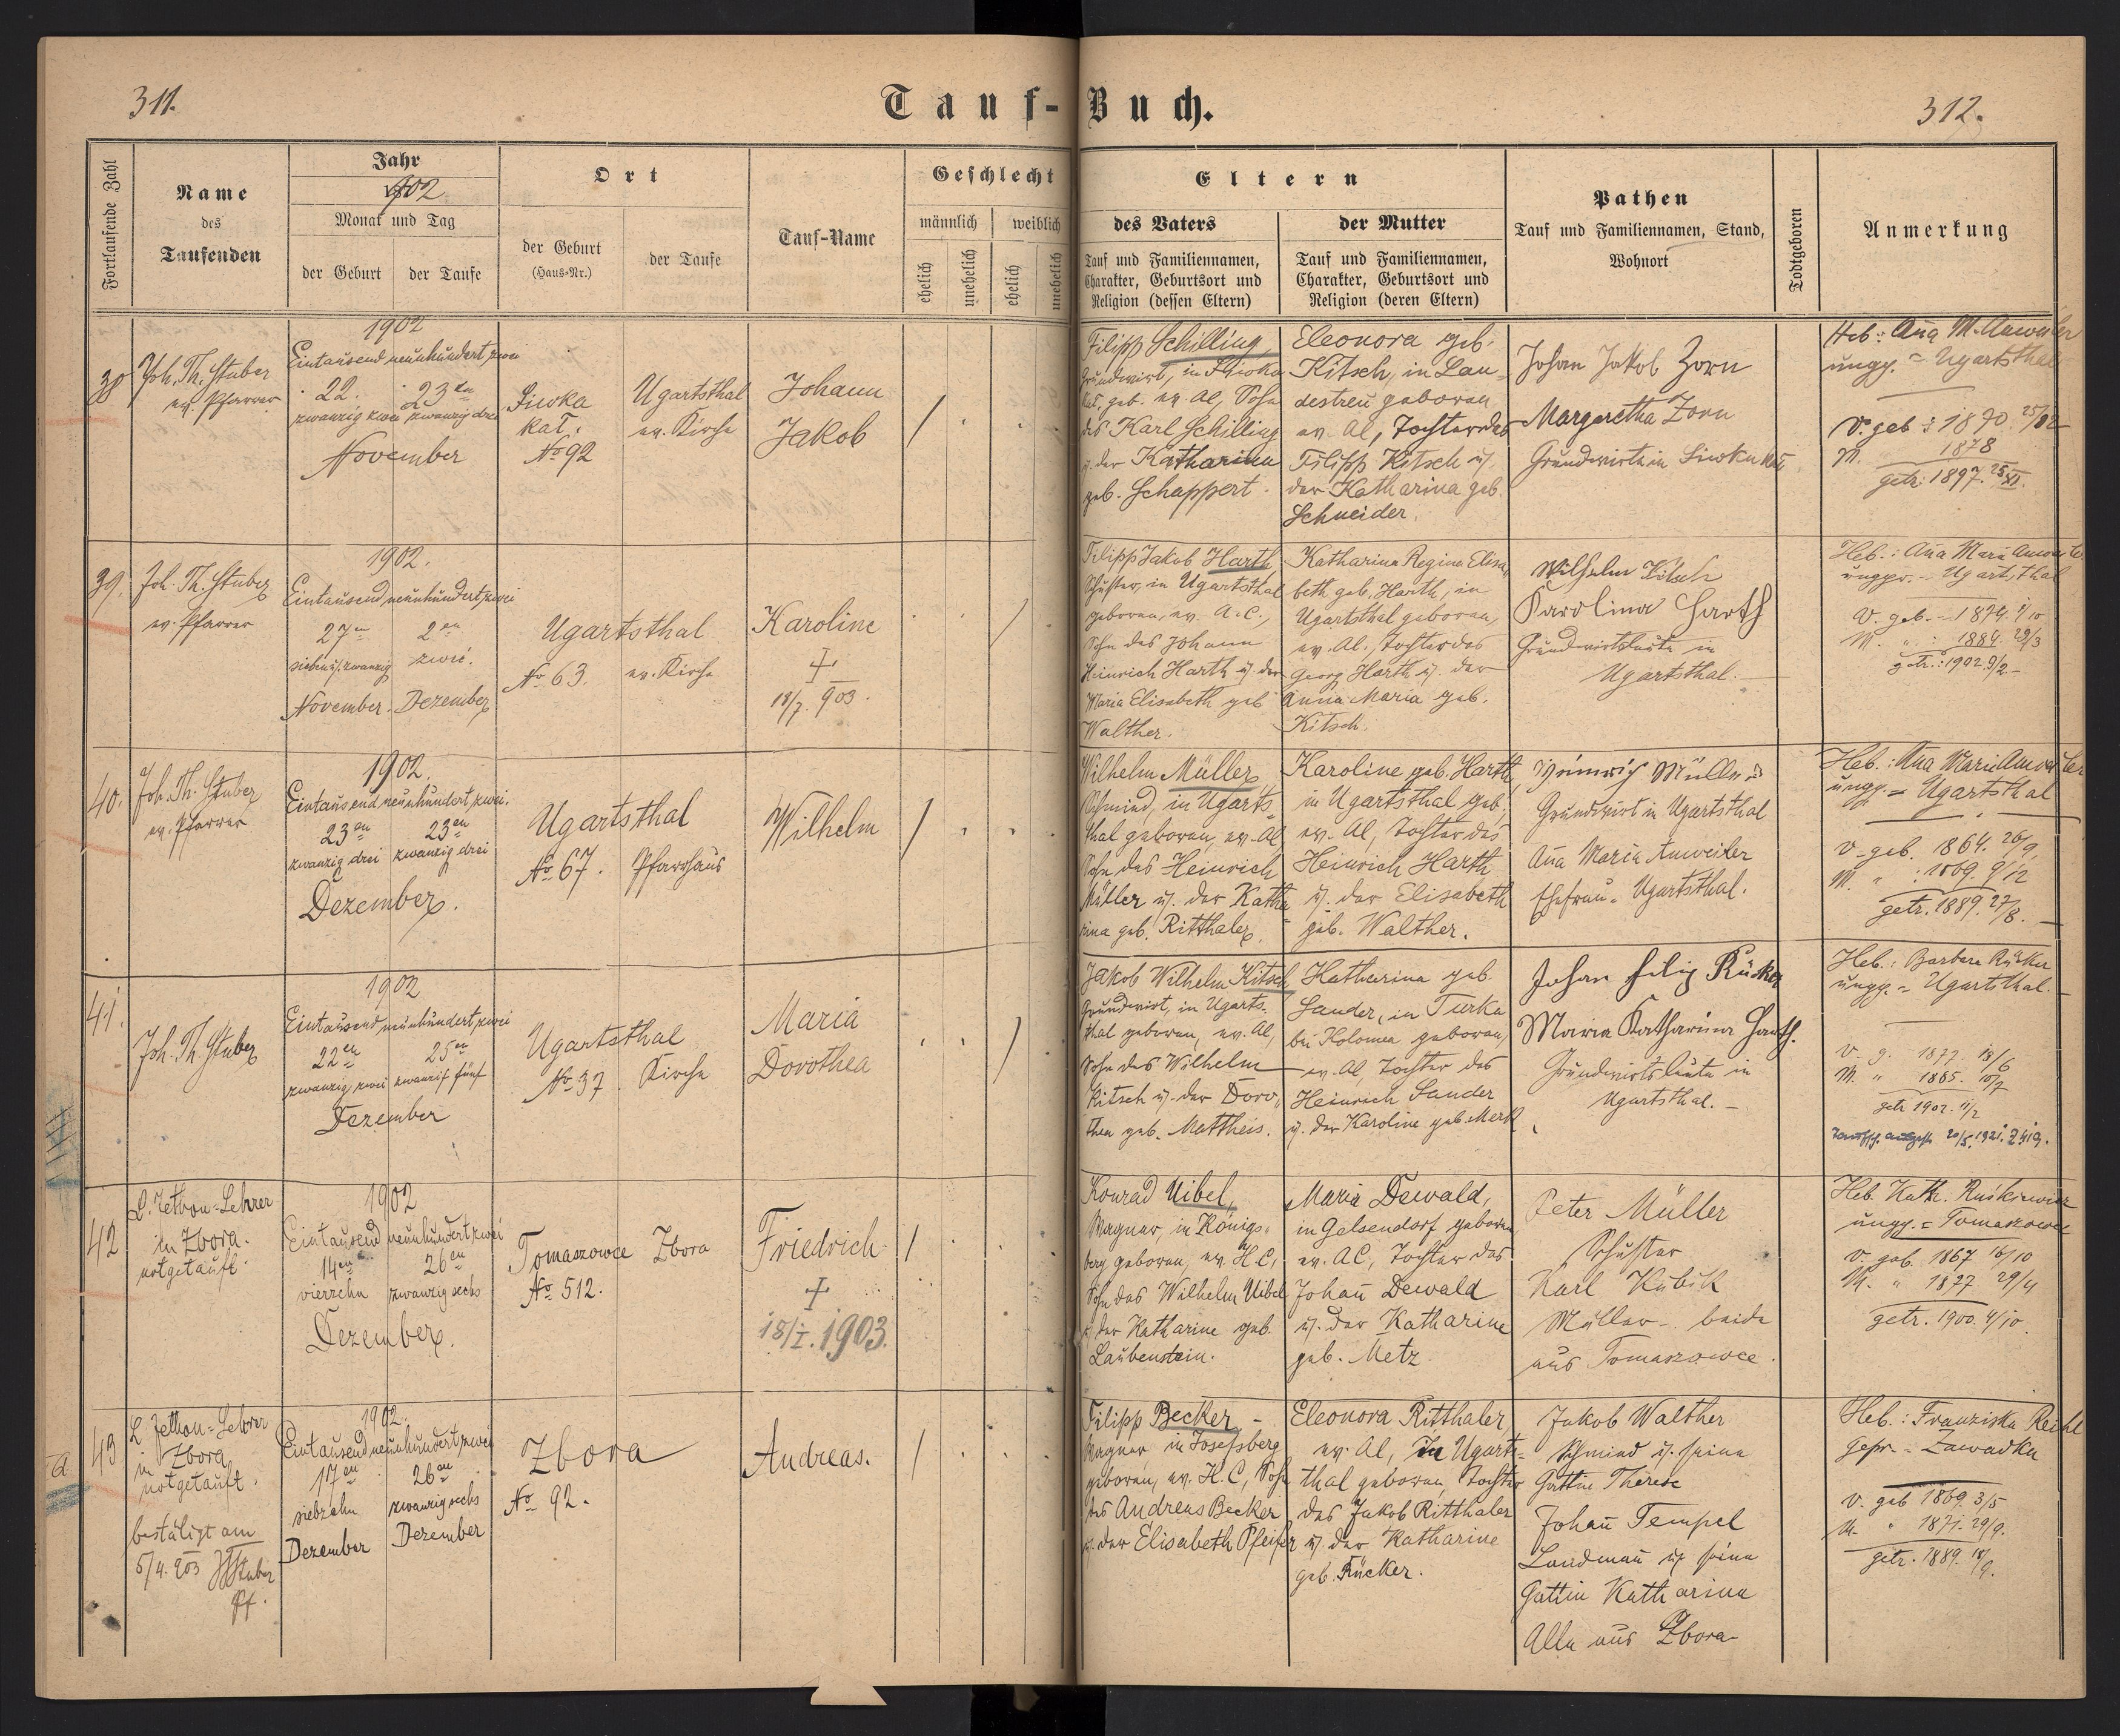 311.
Tauf-Buch.
312.
Fortlaufende Zahl
Name
des
Taufenden
Jahr
1902
Monat und Tag
der Geburt
der Taufe
Ort
der Geburt
(Haus-Nr.)
der Taufe
Tauf-Name
Geschlecht
männlich
weiblich
ehelich
unehelich
ehelich
unehelich
Eltern
des Vaters
Tauf und Familiennamen,
Charakter, Geburtsort und
Religion (dessen Eltern)
der Mutter
Tauf und Familiennamen,
Charakter, Geburtsort und
Religion (deren Eltern)
Pathen
Tauf und Familiennamen, Stand,
Wohnort
Todtgeboren
Anmerkung
38
Joh. Th. Stuber
ev. Pfarrer
1902
Eintausend neunhundert zwei
22. 23en
zwanzig zwei zwanzig drei
November
Siwka
kat.
No 92
Ugartsthal
ev. Kirche
Johann
Jakob
Filipp Schilling
Grundwirt, in Siwka
kat. geb. ev. AC, Sohn
des Karl Schilling
u. der Katharina
geb. Schappert.
Eleonora geb.
Kitsch, in Lan-
destreu geboren
ev. AC, Tochter des
Filipp Kitsch u.
der Katharina geb.
Schneider.
Johan Jakob Zorn
Margaretha Zorn
Grundwirte in Siwka kat.
Heb.: Ana M. Anweiler
ungp. = Ugartsthal
V. geb.: 1870. 25/
M. 1878
getr. 1897. 25/XI.
39.
Joh. Th. Stuber
ev. Pfarrer
1902.
Eintausend neunhundert zwei
27en 2en
sieben u. zwanzig zwei.
November. Dezember
Ugartsthal
No 63.
ev. Kirche
Karoline
+
18/7. 903.
Filipp Jakob Harth
Schuster, in Ugartsthal
geboren, ev. A.C.,
Sohn des Johann
Heinrich Harth u. der
Maria Elisabeth geb
Walther.
Katharina Regina Elisa-
beth geb. Harth, in
Ugartsthal geboren,
ev. AC. Tochter des
Georg Harth u. der
Anna Maria geb.
Kitsch.
Wilhelm Kitsch
Karolina Harth
Grundwirtsleute in
Ugartsthal.
Heb.: Ana Maria Anweiler
ungpr. = Ugartsthal
V. geb. - 1874. 1/10
M. " : 1884. 29/3
getr.: 1902. 9/2.
40.
Joh. Th. Stuber
ev. Pfarrer
1902.
Eintausend neunhundert zwei.
23en 23en
zwanzig drei zwanzig drei
Dezember.
Ugartsthal
No 67.
Pfarrhaus
Wilhelm
Wilhelm Müller
Schmied, in Ugarts-
thal geboren, ev. AC
Sohn des Heinrich
Müller u. der Katha-
rina geb. Ritthaler.
Karoline geb. Harth
in Ugartsthal geb.,
ev. AC, Tochter des
Heinrich Harth
u. der Elisabeth
geb. Walther.
Heinrich Müller
Grundwirt in Ugartsthal
Ana Maria Anweiler
Ehefrau = Ugartsthal.
Heb.: Ana Maria Anweiler
ungp. = Ugartsthal
V. geb. 1864. 26/9
M. " : 1869. 9/12
getr. 1889. 27/8.
41.
Joh. Th. Stuber
1902
Eintausend neunhundert zwei
22en 25en
zwanzig zwei zwanzig fünf
Dezember
Ugartsthal
No 37.
Kirche
Maria
Dorothea
Jakob Wilhelm Kitsch
Grundwirt, in Ugarts-
thal geboren, ev. AC,
Sohn des Wilhelm
Kitsch u. der Doro-
thea geb. Mattheis.
Katharina geb.
Sander, in Turka
bei Kolomea geboren,
ev. AC, Tochter des
Heinrich Sander
u. der Karoline geb. Merk
Johan Filip Rücker
Maria Katharina Harth.
Grundwirtsleute in
Ugartsthal.
Heb.: Barbara Rücker
ungp. = Ugartsthal.
V. g. 1877. 18/6
M. " 1885. 10/7
getr. 1902. 11/2
Taufsch. ausgest. 20/5. 1921.
42
L. Zethon-Lehrer
in Zbora.
notgetauft.
1902
Eintausend neunhundert zwei
14en 26en
vierzehn zwanzig sechs
Dezember.
Tomaszowce
No 512.
Zbora
Friedrich
+
18/I. 1903.
Konrad Uibel,
Wagner, in Königs-
berg geboren, ev. H.C,
Sohn des Wilhelm Uibel
u. der Katharine geb.
Laubenstein.
Maria Dewald,
in Gelsendorf geboren
ev. AC, Tochter des
Johann Dewald
u. der Katharine
geb. Metz.
Peter Müller
Schuster
Karl Kubik
Müller - beide
aus Tomaszowce.
Heb. Kath. Ruskiewicz
ungp. = Tomaszowce
V. geb. 1867 16/10
M. " 1877 29/4
getr. 1900. 4/10.
a
43
L. Zethon-Lehrer
in Zbora
notgetauft.
bestätigt am
5/4. 903 JThStuber
Pf.
1902.
Eintausend neunhundert zwei
17en 26en
siebzehn zwanzig sechs
Dezember Dezember
Zbora
No 92.
Andreas.
Filipp Becker -
Wagner in Josefsberg
geboren, ev. H.C, Sohn
des Andreas Becker
u. der Elisabeth Pfeifer
Eleonora Ritthaler
ev. AC, in Ugarts-
thal geboren, Tochter
des Jakob Ritthaler
u. der Katharine
geb. Rücker.
Jakob Walther
Schmied u. seine
Gattin Therese
Johann Tempel
Landmann u. seine
Gattin Katharina
Alle aus Zbora
Heb.: Franziska Reichl
gepr. = Zawadka
V. geb 1869. 3/5
M. " 1871. 29/9.
getr. 1889. 18/9.